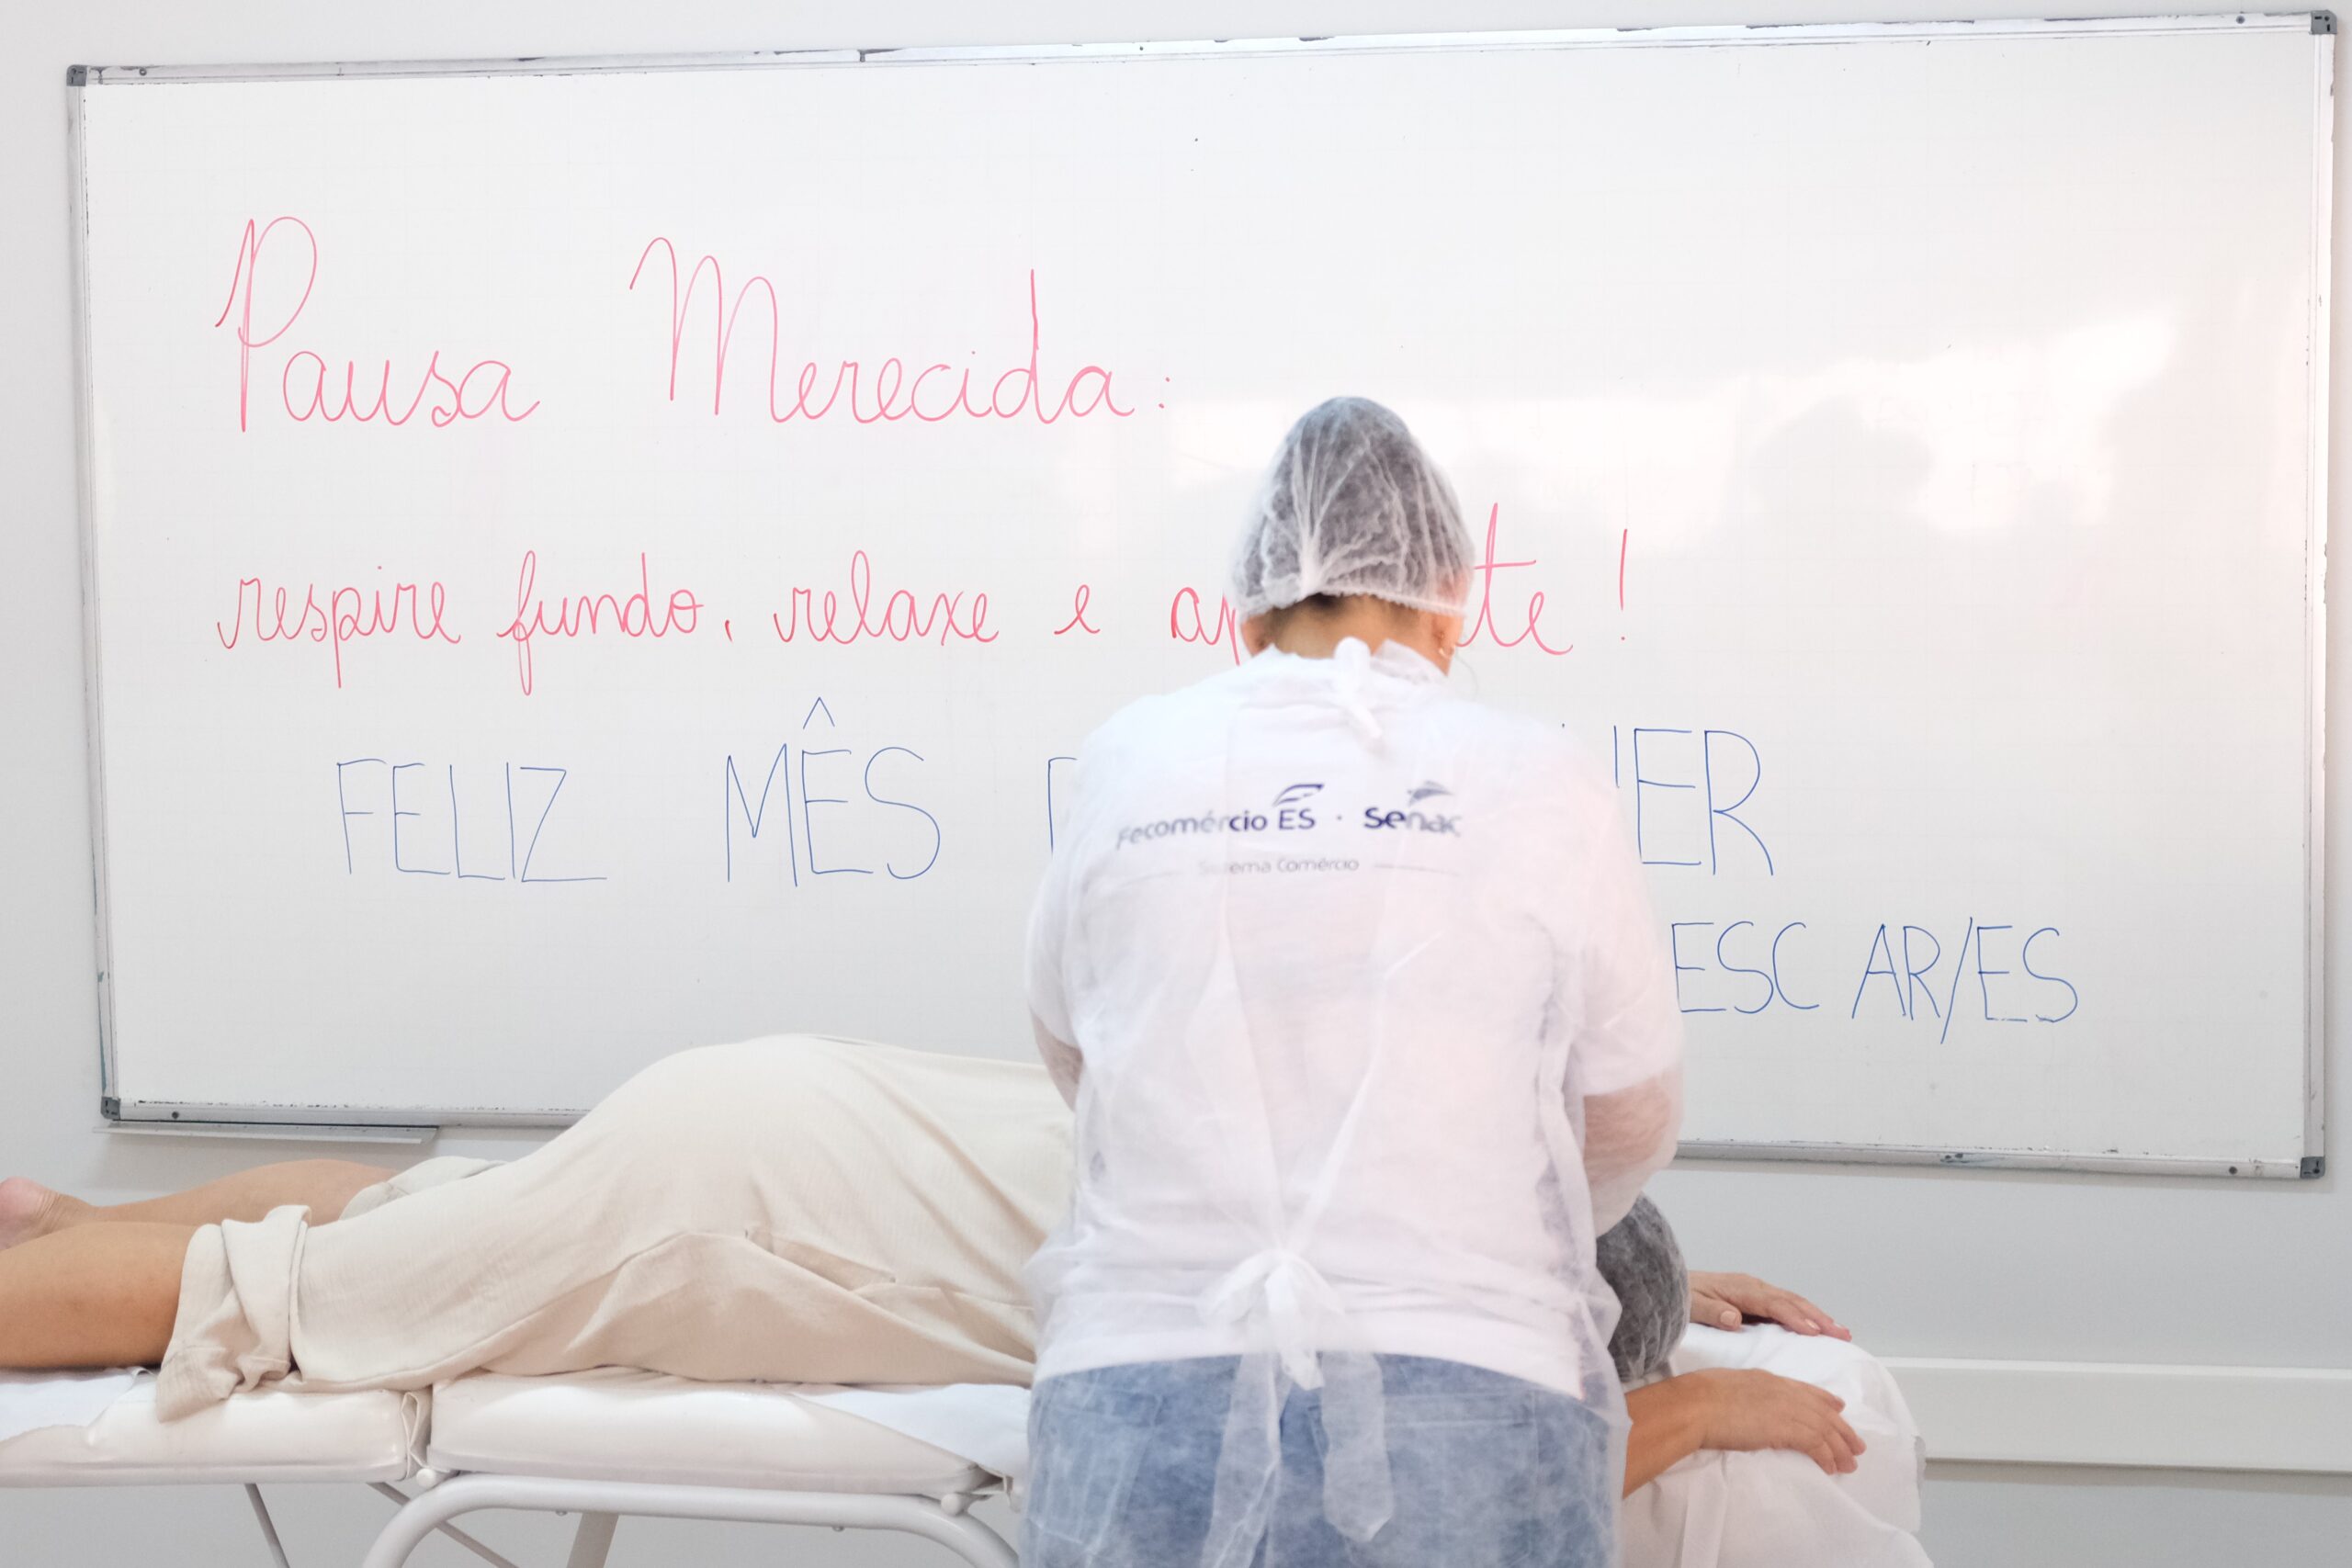 Pausa Merecida:
respire fundo, relaxe e !
FELIZ MÊS
AR/ES
Fecomércio ES · Senac
Sistema Comércio